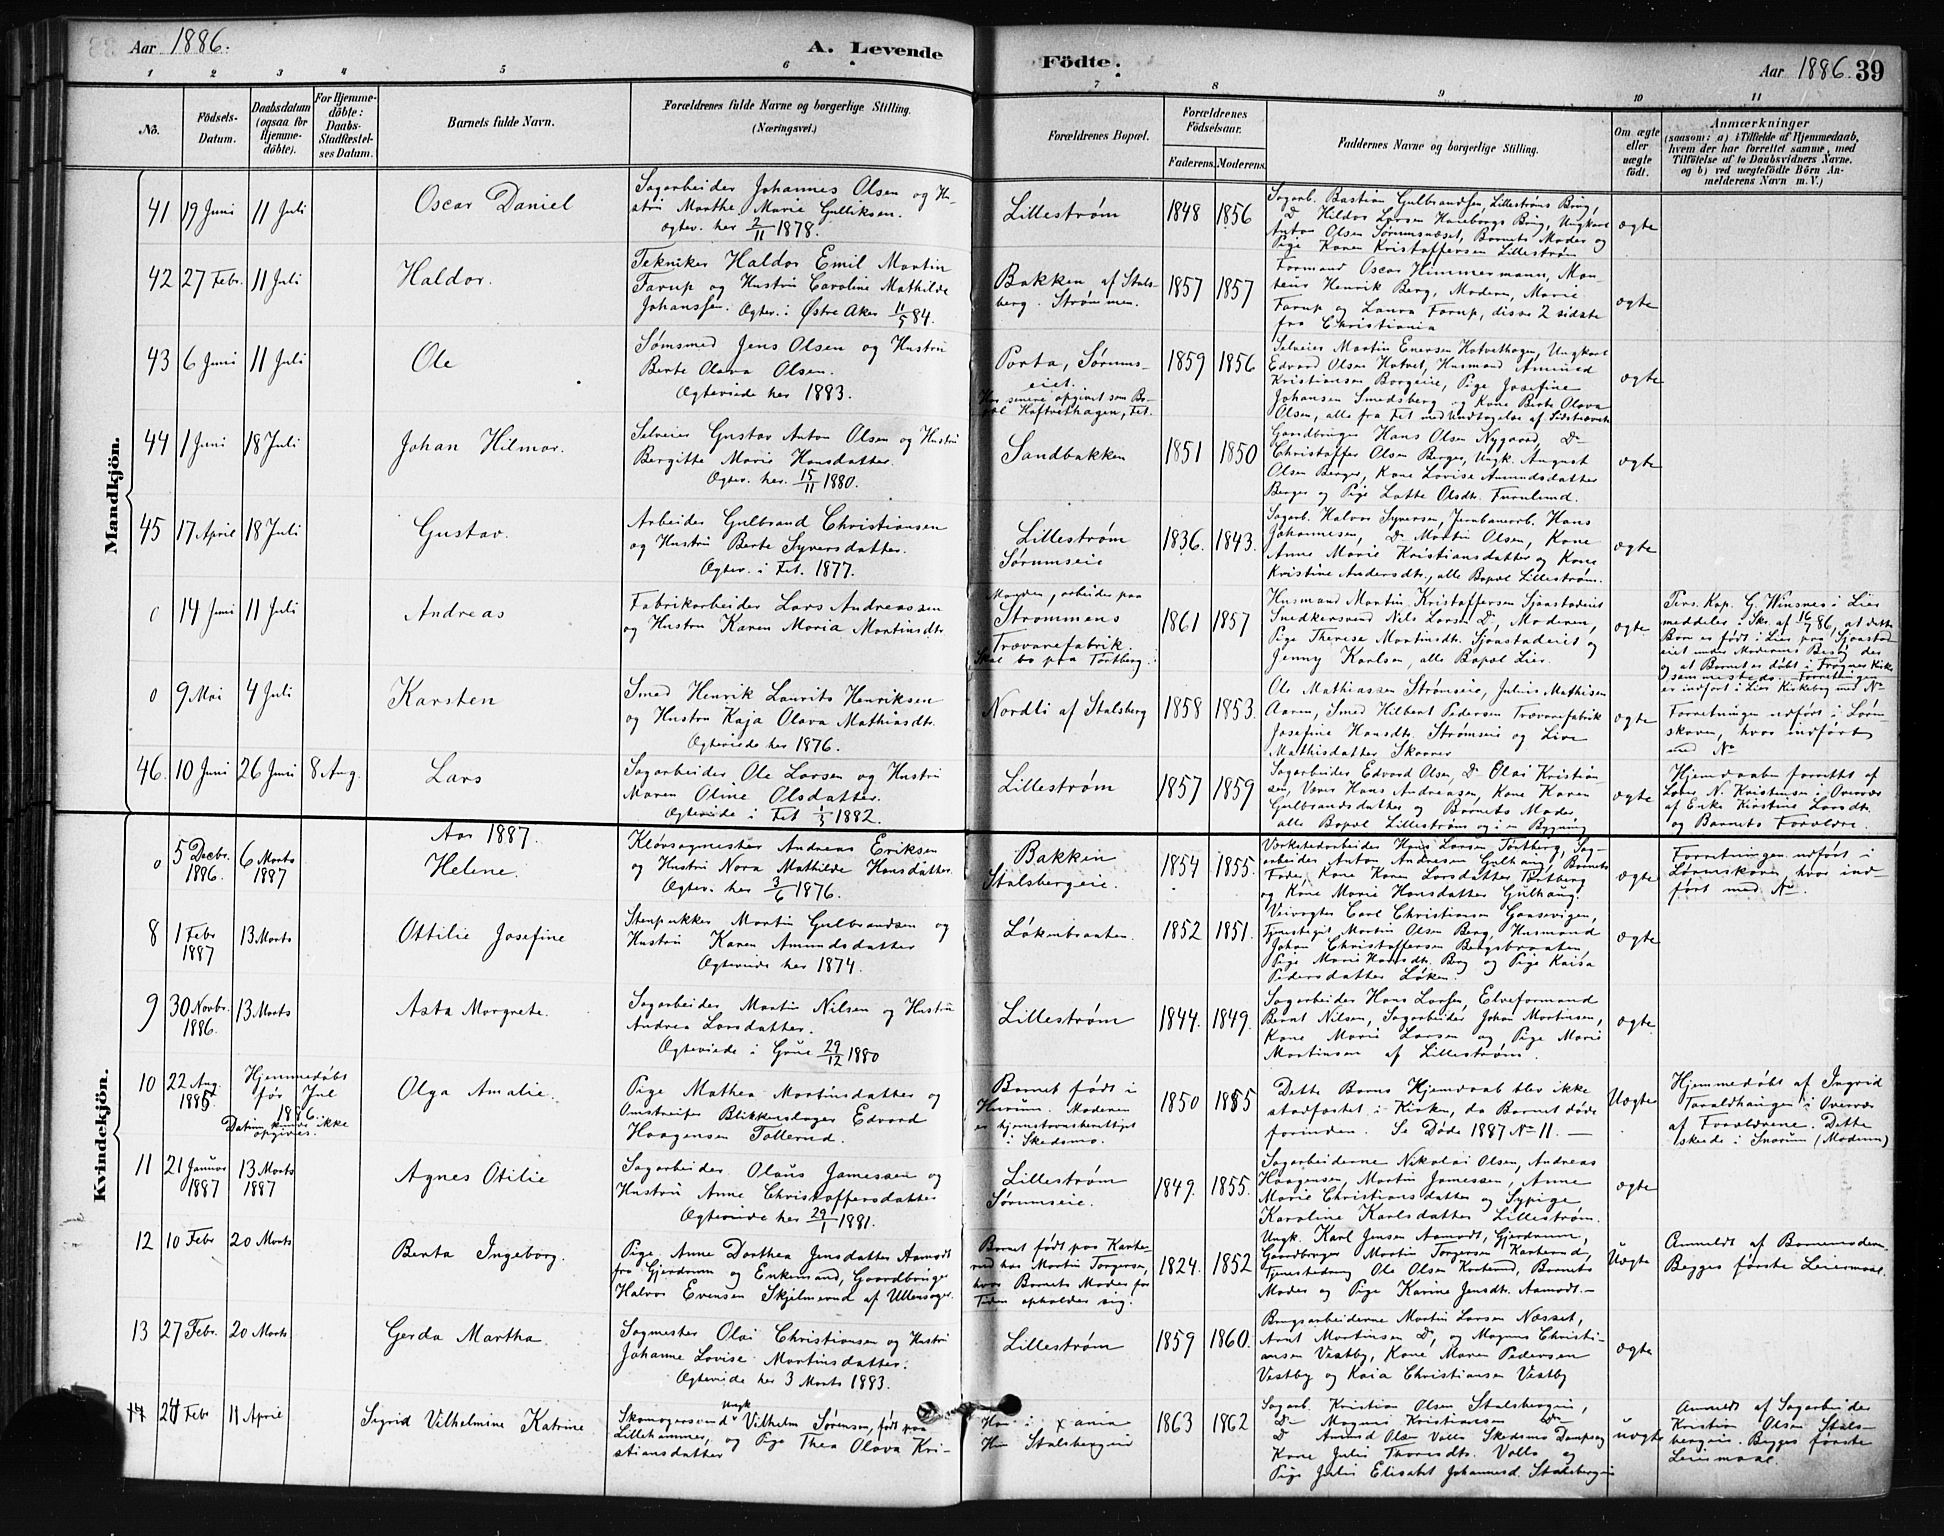 Aar 1886.
A. Levende
Födte.
Aar 1886. 39
1 2 3 4 5 6 7 8 9 10 11
No.
Födsels-
Datum.
Daabsdatum
(ogsaa for
Hjemme-
döbte).
For Hjemme-
döbte:
Daabs-
Stadfæstel-
ses Datum.
Barnets fulde Navn.
Forældrenes fulde Navne og borgerlige Stilling.
(Næringsvei.)
Forældrenes Bopæl.
Forældrenes
Födselsaar.
Faderens. Moderens.
Faddernes Navne og borgerlige Stilling.
Om ægte
eller
uægte
födt.
Anmærkninger
(saasom: a) i Tilfælde af Hjemmedaab,
hvem der har forrettet samme, med
Tilföielse af to Daabsvidners Navne.
og b) ved uægtefödte Börn An-
melderens Navn m. V.)
Mandkjön.
41 19 Juni 11 Juli
Oscar Daniel
Sagarbeider Johannes Olsen og Hu-
stru Marthe Marie Gulliksen.
Ægtev. her 2/11 1878.
Lillestrøm
1848 1856
Sagarb. Bastian Gulbrandsen, Lillestrøms Brug,
Do Hildor Larsen Haneborgs Brug, Ungkarl
Anton Olsen Sørumsnæset, Barnets Moder og
Pige Karen Kristoffersen Lillestrøm
ægte
42 27 Febr. 11 Juli
Haldor.
Tekniker Haldor Emil Martin
Farup og Hustru Caroline Mathilde
Johanssen. Ægtev. i Østre Aker 11/5 84.
Bakken af Stals-
berg. Strømmen.
1857 1857
Formand Oscar Himmermann, Mon-
teur Henrik Berg, Modern, Marie
Farup og Laura Farup, disse 2 sidste
fra Christiania
ægte
43 6 Juni 11 Juli
Ole
Sømsmed Jens Olsen og Hustru
Berte Olava Olsen.
Ægteviede her 1883.
Porta, Sørums-
eiet.
Har senere opgivet som Bo-
pæl Haftvethagen, Fet.
1859 1856
Selveier Martin Enersen Hatvethagen, Ungkarl
Edvard Olsen Hatvet, Husmand Amund
Kristiansen Borgeie, Pige Josefine
Johansen Smedsberg og Kone Berte Olava
Olsen, alle fra Fet med Undtagelse af Sidstnævnte
ægte
44 1 Juni 18 Juli
Johan Hilmar.
Selveier Gustav Anton Olsen og Hustru
Bergitte Marie Hansdatter.
Ægtev. her. 15/11 1880.
Sandbakken
1851 1850
Gaardbruger Hans Olsen Nygaard, Do
Christoffer Olsen Berger, Ungk. August
Olsen Berger, Kone Lovise Amundsdatter
Berger og Pige Lotte Olsdt. Furulund.
ægte
45 17 April 18 Juli
Gustav.
Arbeider Gulbrand Christiansen
og Hustru Berte Syversdatter.
Ægtev. i Fet. 1877.
Lillestrøm
Sørumseie
1836. 1843.
Sagarb. Halvor Syversen, Jernbanearb. Hans
Johannesen, Do Martin Olsen, Kone
Anne Marie Kristiansdatter og Kone
Kristine Andersdt., alle Bopæl Lillestrøm.
ægte
0 14 Juni 11 Juli
Andreas
Fabrikarbeider Lars Andreassen
og Hustru Karen Maria Martinsdt.
Manden, arbeider paa
Strømmens
Trævarefabrik.
Skal bo paa Tortberg.
1861 1857
Husmand Martin Kristoffersen Sjaastadeiet
Snedkersvend Nils Larsen Do, Moderen,
Pige Therese Martinsdt. Sjaastadeiet og
Jenny Karlsen, alle Bopæl Lier.
ægte
Pers. Kap. G. Winsnes i Lier
meddeler i Skr. af 16/7 86, at dette
Barn er født i Lier paa Sjaastad-
eiet under Moderens Besøg der
og at Barnet er døbt i Frogner Kirke
sammesteds. Forretningen
er indført i Lier Kirkebog med No
0 9 Mai 4 Juli
Karsten
Smed Henrik Laurits Henriksen
og Hustru Kaja Olava Mathiasdt.
Ægteviede her 1876.
Nordli af Stalsberg
1858 1853.
Ole Mathiassen Strømseie, Julius Mathisen
Aaren, Smed Hilbert Pedersen Trævarefabrik
Josefine Hansdt. Strømseie og Live
Mathisdatter Skarer
ægte
Forretningen udført i Lørn-
skoven, hvor indført
med No
46. 10 Juni 26 Juni 8 Aug.
Lars
Sagarbeider Ole Larsen og Hustru
Maren Oline Olsdatter.
Ægteviede i Fet 1/5 1882.
Lillestrøm
1857 1859
Sagarbeider Edvard Olsen, Do Olai Kristian-
sen, Verer Hans Andreasen, Kone Karen
Gulbrandsdatter og Barnets Moder
alle Bopæl Lillestrøm og i en Bygning
ægte
Hjemdaaben forrettet af
Lærer N. Kristensen i Overvær
af Enke Kirstine Larsdt.
og Barnets Forældre.
Kvindekjön.
Aar 1887.
0 5 Decbr. 1886. 6 Marts 1887
Helene.
Kløvsagmester Andreas Eriksen
og Hustru Nora Mathilde Hansdatter.
Ægtev. her 3/6 1876.
Bakken
Stalsbergeie.
1854 1855.
Værkstedarbeider Hans Larsen Tortberg, Sag-
arbeider Anton Andresen Gulhaug, Barnets
Fader, Kone Karen Larsdatter Tortberg
og Kone Marie Hansdatter Gulhaug.
ægte
Forretningen udført i
Lørenskoven, hvor ind-
ført med No
8 1 Febr 1887 13 Marts
Ottilie Josefine
Stenpukker Martin Gulbrandsen og
Hustru Karen Amundsdatter
Ægteviede her 1874.
Løkenbraaten.
1852 1851.
Veivogter Carl Christiansen Gaasevigen,
Tjenestegut Martin Olsen Berg, Husmand
Johan Christoffersen Bergsbraaten,
Pige Marie Hansdt. Berg og Pige Kaisa
Pedersdatter Løken.
ægte
9 30 Novbr. 1886. 13 Marts
Asta Margrete.
Sagarbeider Martin Nilsen og Hustru
Andrea Larsdatter.
Ægteviede i Grue 29/12 1880
Lillestrøm
1844. 1849.
Sagarbeider Hans Larsen, Elveformand
Bernt Nilsen, Sagarbeider Johan Martinsen,
Kone Marie Larsen og Pige Marie
Martinsen af Lillestrøm.
ægte.
10 22 Aug. 1885
Hjemmedøbt
før Jul
1886.
Datum kunde ikke
opgives.
Olga Amalie.
Pige Mathea Martinsdatter og
Omstreifer Blikkenslager Edvard
Haagensen Tollerud.
Barnet født i
Hurum. Moderen
er hjemstavnsberettiget
i Skedsmo.
1850 1855
Dette Barns Hjemdaab blev ikke
stadfæstet i Kirken, da Barnet døde
forinden. Se Døde 1887 No 11. —
Uægte
Hjemmedøbt af Ingrid
Taraldhaugen i Overvær
af Forældrene. Dette
skede i Snarum (Modum)
11 21 Januar 1887 13 Marts 1887
Agnes Otilie
Sagarbeider Olaus Jamessen og
Hustru Anne Christoffersdatter
Ægteviede her 29/1 1881.
Lillestrøm
Sørumseie.
1849. 1855.
Sagarbeiderne Nikolai Olsen, Andreas
Haagensen, Martin Jamessen, Anne
Marie Christiansdatter og Sypige
Karoline Karlsdatter Lillestrøm.
ægte
12 10 Febr 20 Marts
Berta Ingeborg.
Pige Anne Dorthea Jensdatter Aamodt
fra Gjerdrum og Enkemand, Gaardbruger
Halvor Evensen Skjelmerud af Ullensager.
Barnet født paa Karte-
rud hos Martin Torgersen,
hvor Barnets Moder for
Tiden opholder sig.
1824. 1852
Ungk. Karl Jensen Aamodt, Gjerdrum,
Gaardbruger Martin Torgersen Karterud,
Tjenestedreng Ole Olsen Karterud, Barnets
Moder og Pige Karine Jensdt. Aamodt.—
Uægte
Anmeldt af Barnemoderen.
Begges første Leiermaal.
13 27 Febr. 20 Marts
Gerda Martha.
Sagmester Olai Christiansen og Hustru
Johanne Lovise Martinsdatter.
Ægteviede her 3 Marts 1883.
Lillestrøm
1859 1860.
Brugsarbeiderne Martin Larsen Næsset,
Arnt Martinsen Do, og Magnus Christi-
ansen Vestby, Kone Maren Pedersen
Vestby og Kaia Christiansen Vestby
ægte
14 24 Febr 11 April
Sigrid Vilhelmine Katrine
Skomagersvend Ungk Vilhelm Sørensen, født paa
Lillehammer, og Pige Thea Olava Kri-
stiansdatter
Han i Xania
Hun Stalsbergeie
1863 1862
Sagarb. Kristian Olsen Stalsbergeie,
Do Magnus Kristiansen Do
Do Amund Olsen Valle Skedsmo Dampsag
Kone Julie Thorsdt. Valle og
Pige Julie Elisabt Johannesd. Stalsbergeie
uægte
Anmeldt af Sagarbeider
Kristian Olsen Stals-
bergeie. Begges første
Leiermaal.